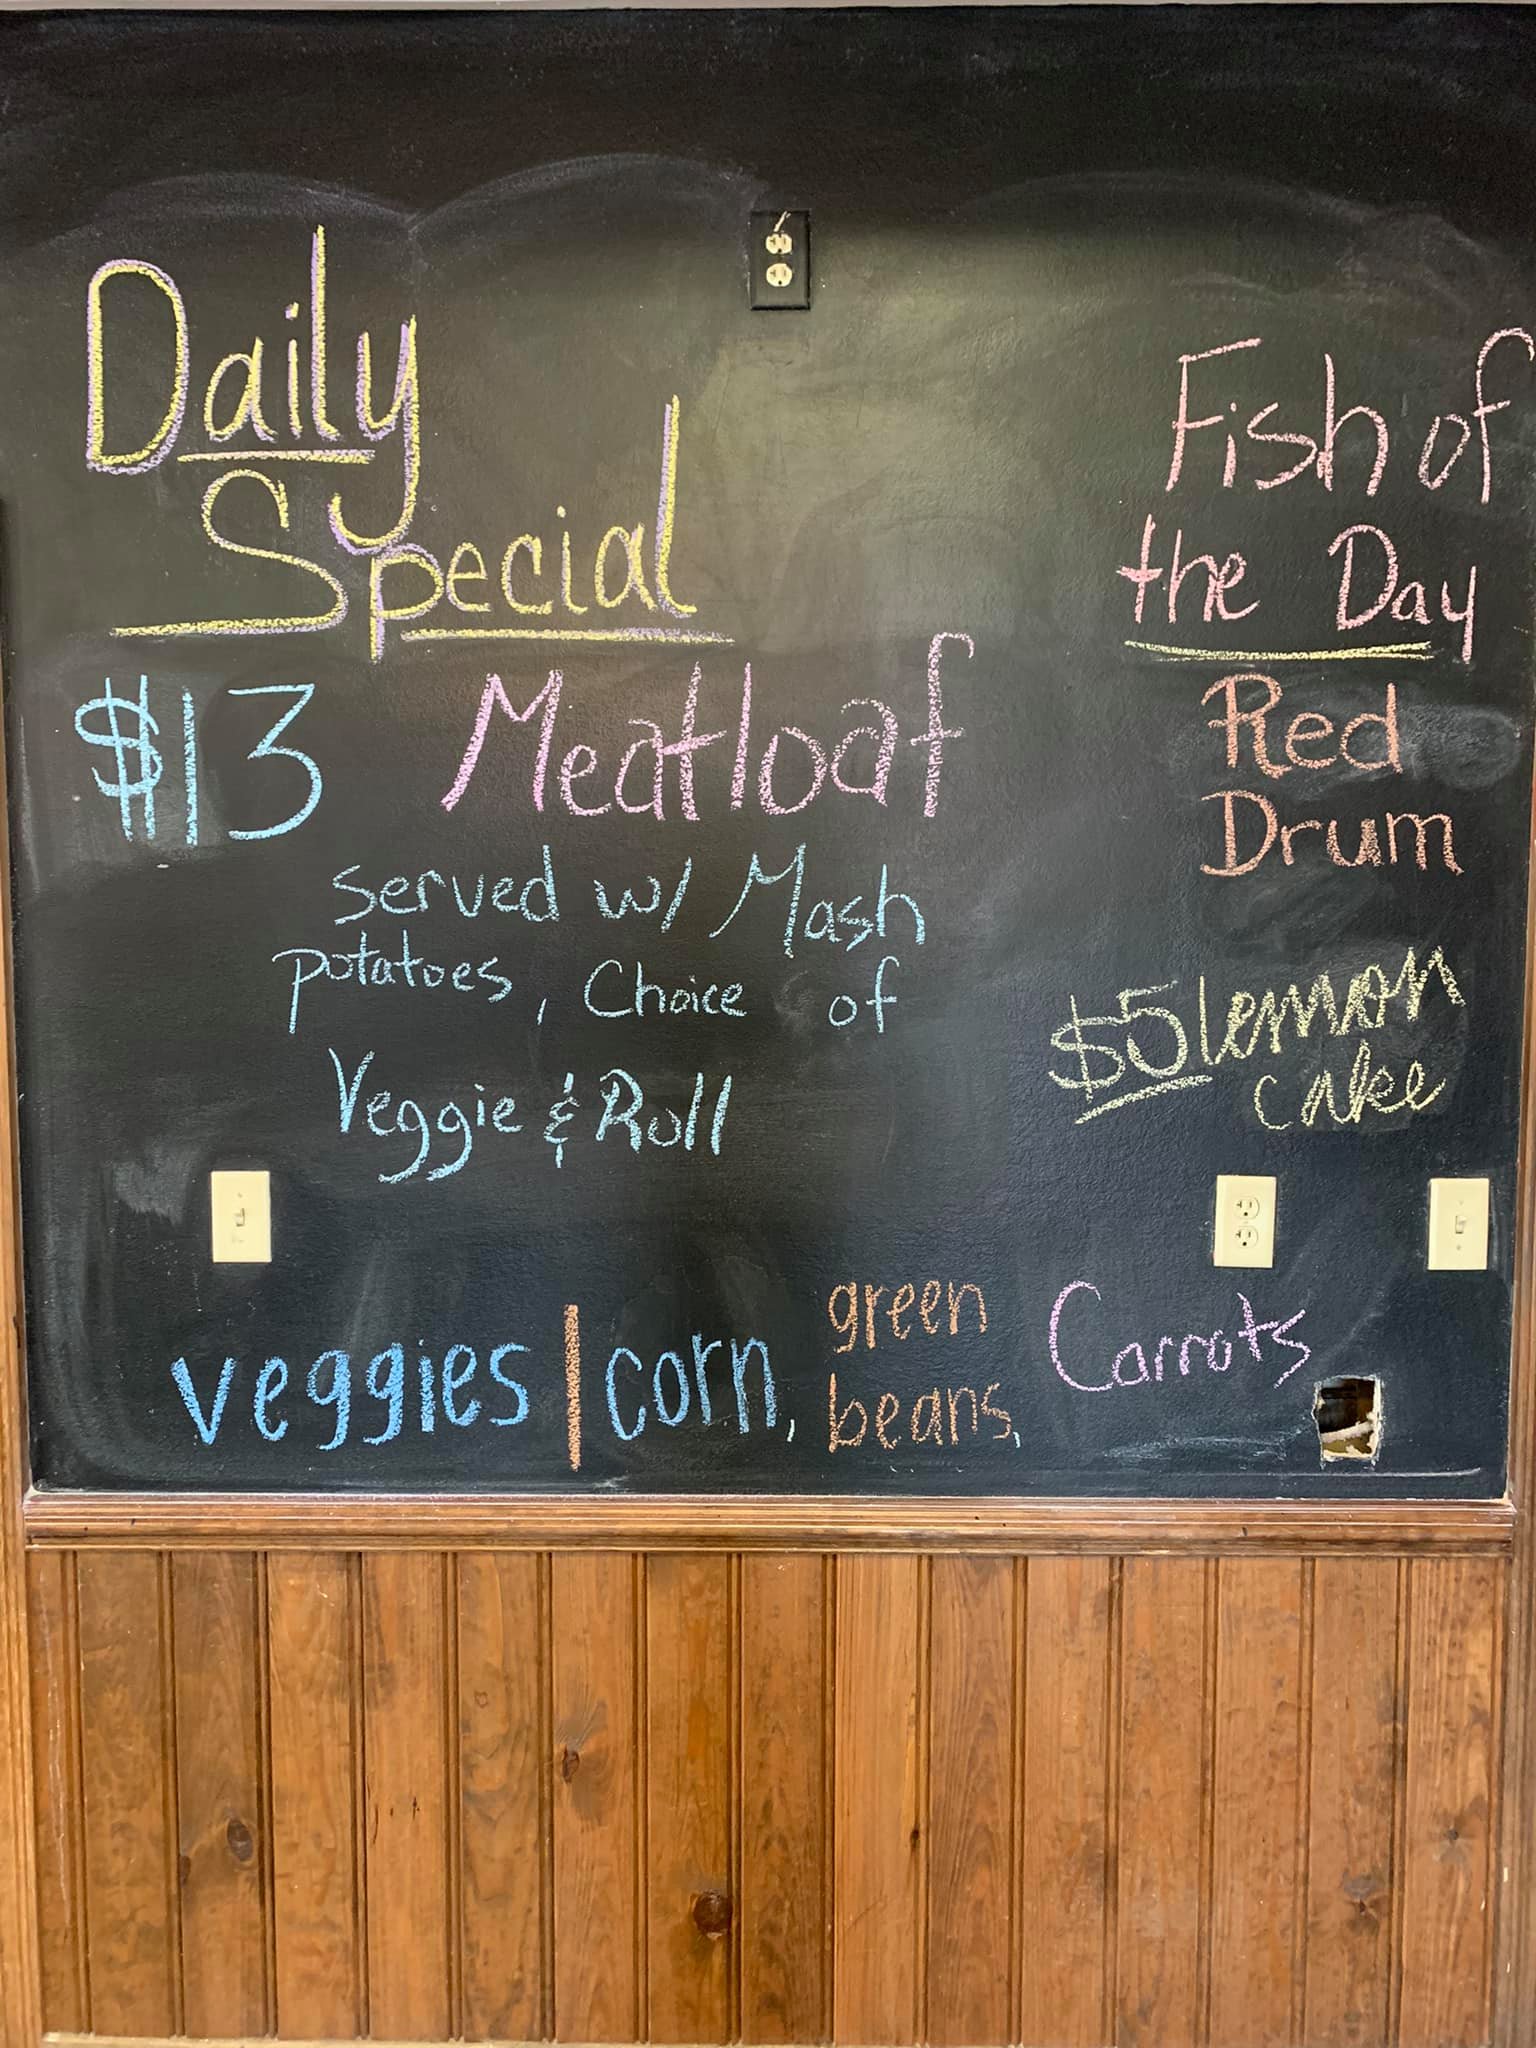 Daily
Special
$13 Meatloaf
served w/ Mash
potatoes, Choice of
Veggie & Roll
Fish of
the Day
Red
Drum
$5 lemon
cake
veggies | corn, green
beans, Carrots